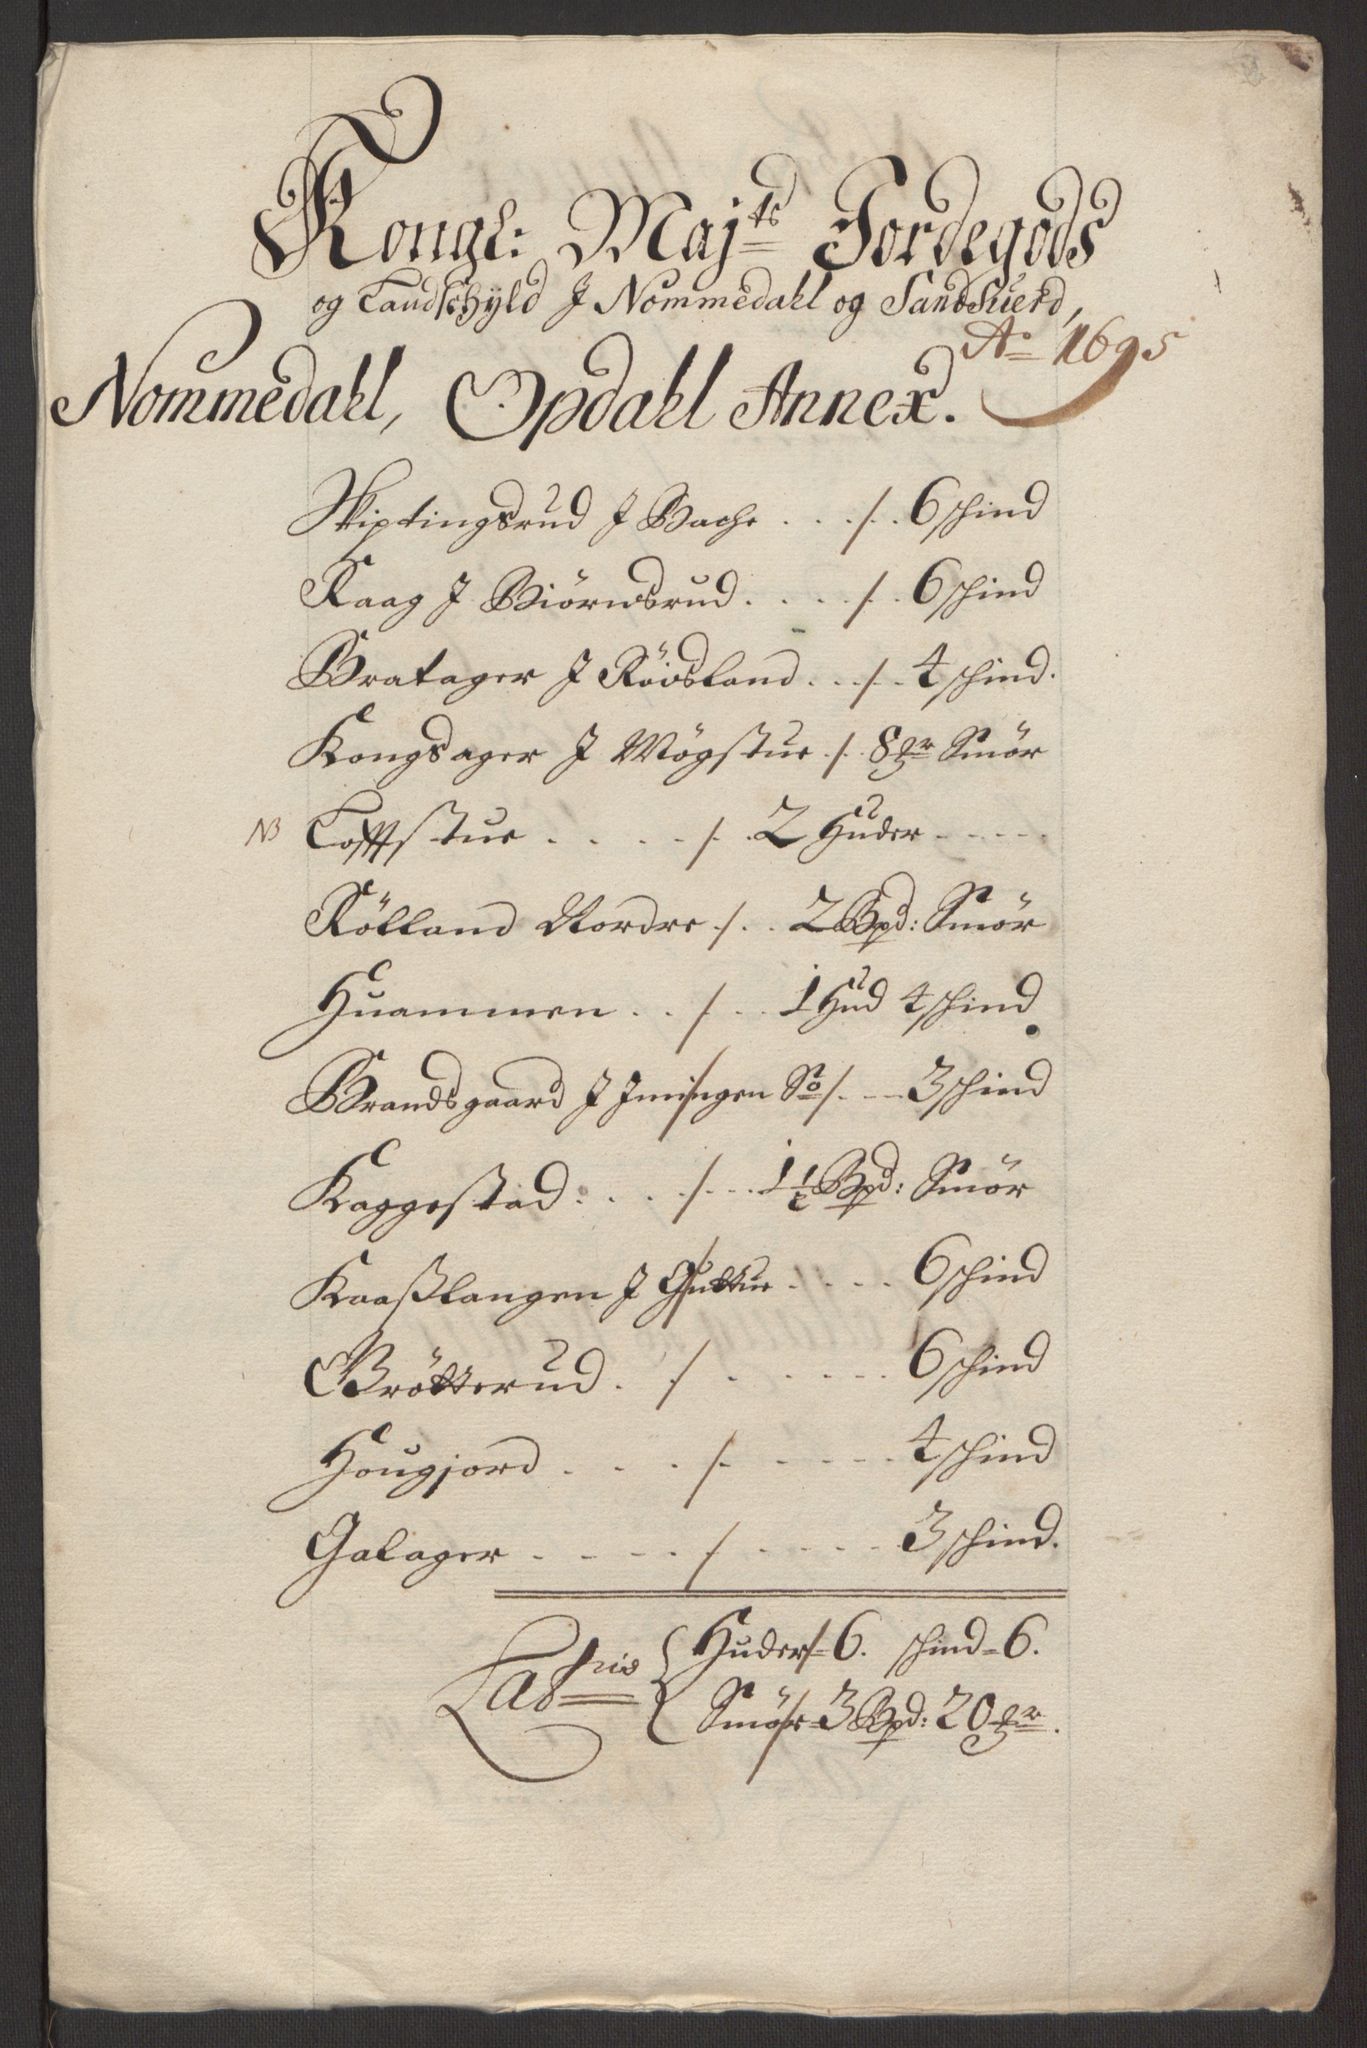 Kongl: Maj:ts Jordegods
og Landschyld J Nommedahl og Sandsuerd,
Ao 1695
Nommedahl, Opdahl Annex.
Skiptingsrud J Bache . . ./. . 6 schind
Raag J Biörnsrud . . . ./. . 6 schind
Bratager J Röisland . . ./. . 4 schind.
Kongsager J Mögstue ./. 8 mr Smör
NB Toffstue . . . . ./. . 2 Huder - - - -
Rölland Nordre ./. . 2 Bpd: Smör
Huammen . . ./. . . 1 Hud 4 schind
Brandsgaard J Jmingen So ./. - - 3 schind
Kaggestad . . . ./. . . 1 1/2 Bpd: Smör
Kaaßlangen J Guttue . . . . 6 schind
Brötterud . ./. . . . . . . 6 schind
Hougjord . . . . ./. - - - - - 4 schind
Galager - - - - - ./. - - - - - 3 schind.
Latus { Huder = 6. schind = 6.
Smör = 3 Bpd: 20 mr.